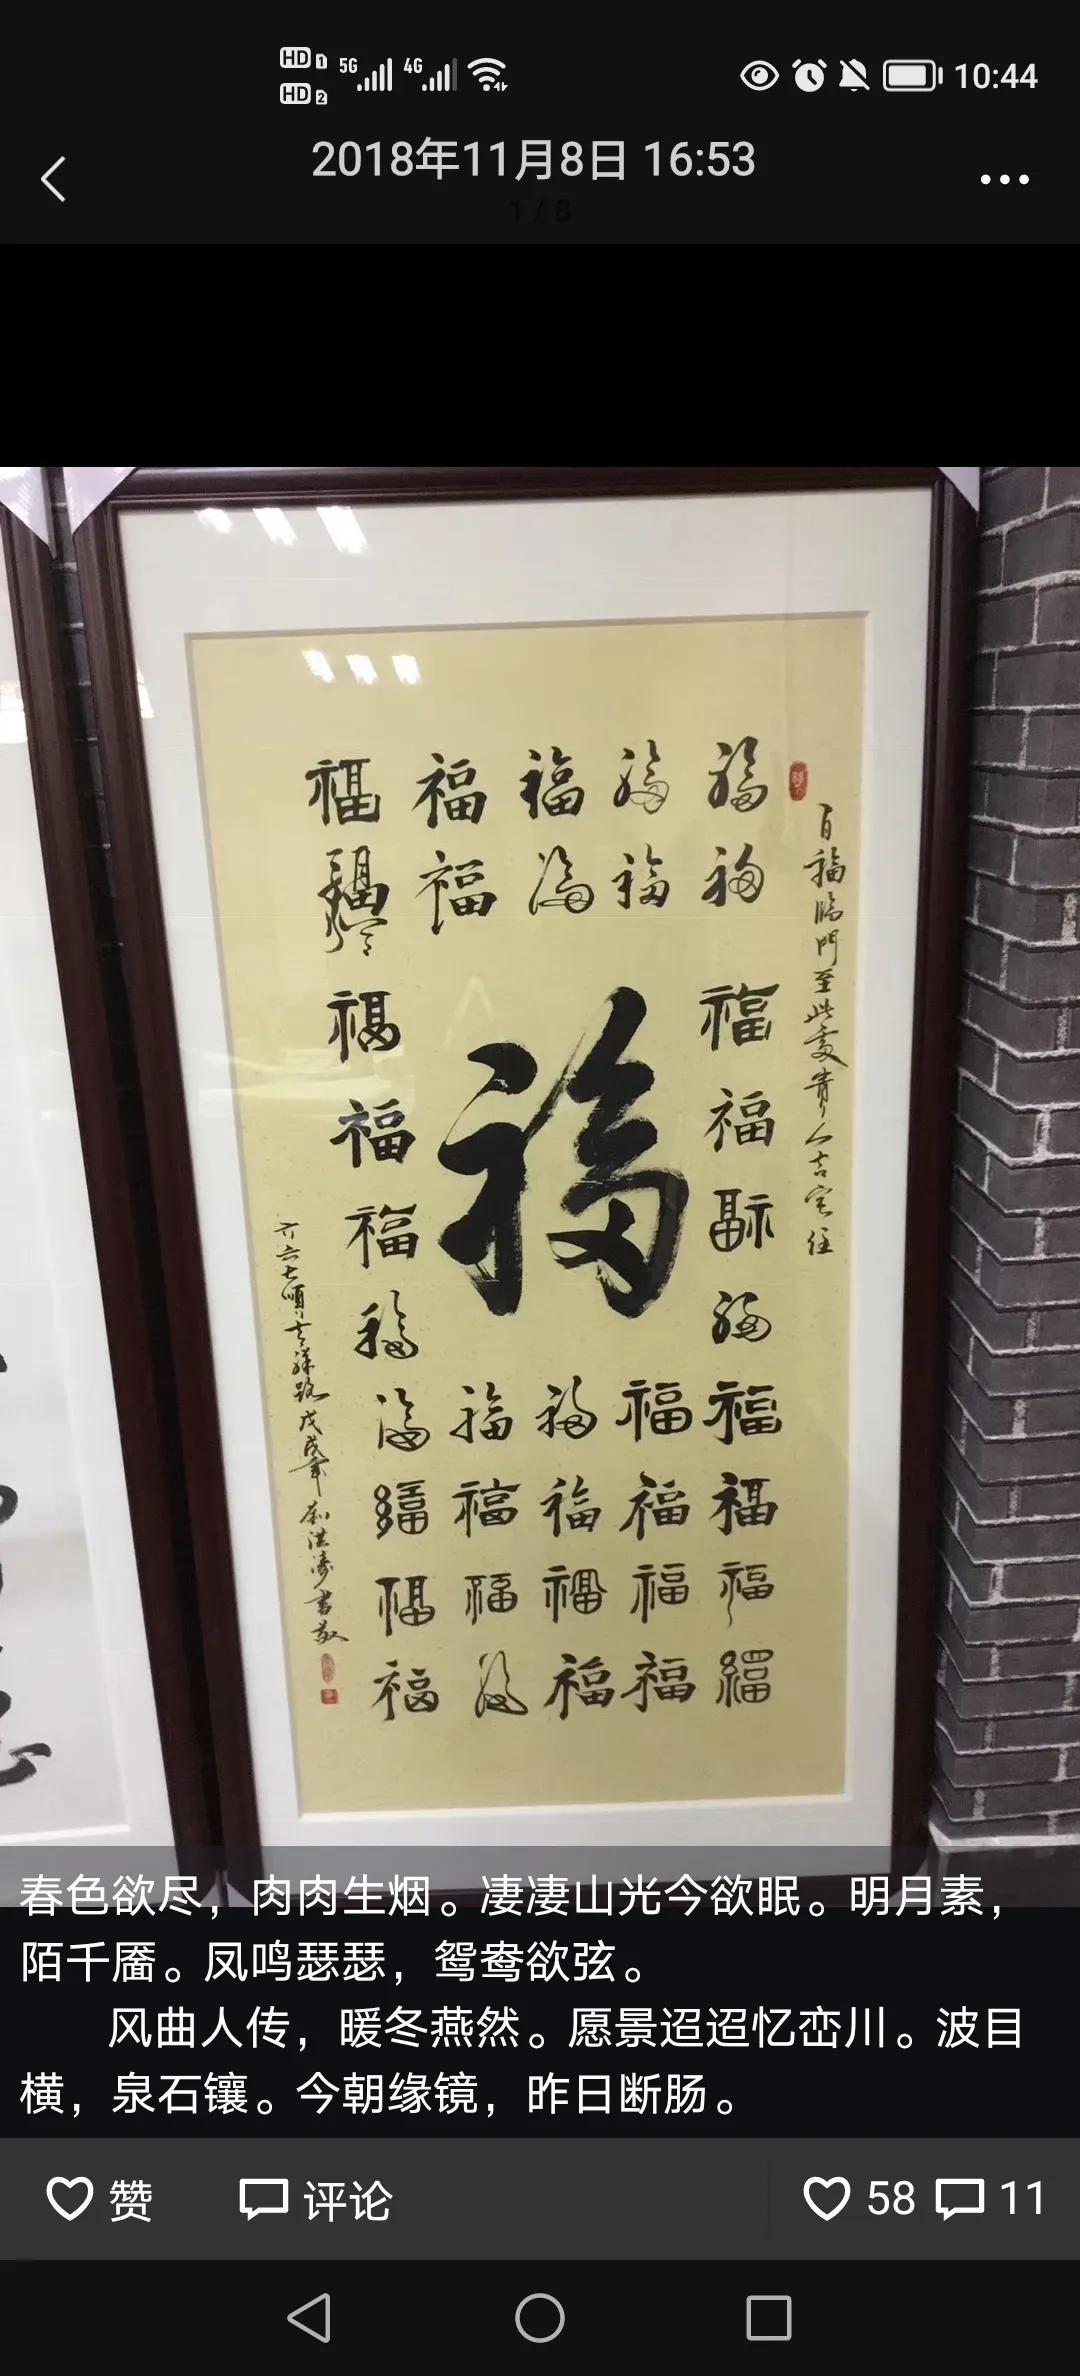 HD 1 5G 4G
HD 2
10:44
2018年11月8日 16:53
1 / 8
福 福 福 福 福
福 福 福 福
福 福
福 福
福
福 福
福 福
福 福 福 福 福
福 福 福 福 福
福 福 福 福 福
福 福 福 福 福
百福臨門至此處貴人吉宅住
六七順吉祥路戊戌年刘洪涛書敬
春色欲尽，肉肉生烟。凄凄山光今欲眠。明月素，
陌千靥。凤鸣瑟瑟，鸳鸯欲弦。
风曲人传，暖冬燕然。愿景迢迢忆峦川。波目
横，泉石镶。今朝缘镜，昨日断肠。
赞 评论 58 11